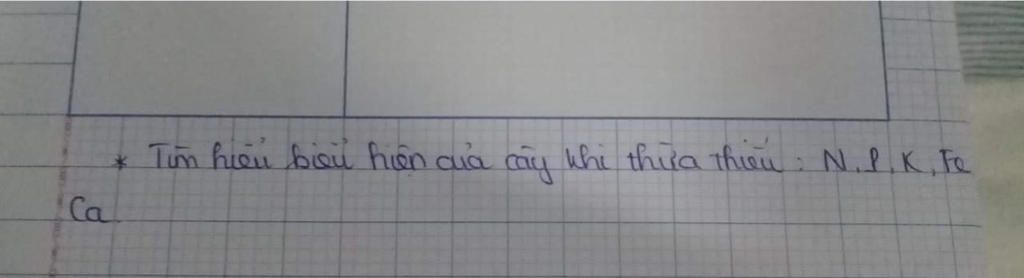 * Tìm hiểu biểu hiện của cây khi thừa thiếu : N, P, K, Fe
Ca